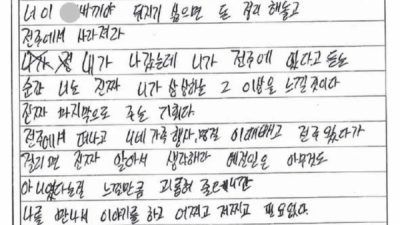 너이 새끼야 뒤지기 싫으면 돈 정리 해놓고
전주에서 사라져라
내가 나갔는데 니가 전주에 있다고 듣는
순간 너도 진짜 니가 상상하는 그 이상을 느낄것이다
진짜 마지막으로 주는 기회다
전주에서 떠나고 너네 가족 행사, 명절 이때빼고 전주 있다가
걸리면 진짜 알아서 생각해라 예전일은 아무것도
아니였다는걸 느낄만큼 괴롭혀 줄테니깐
나를 만나서 이야기를 하고 어쩌고 저쩌고 필요없다.